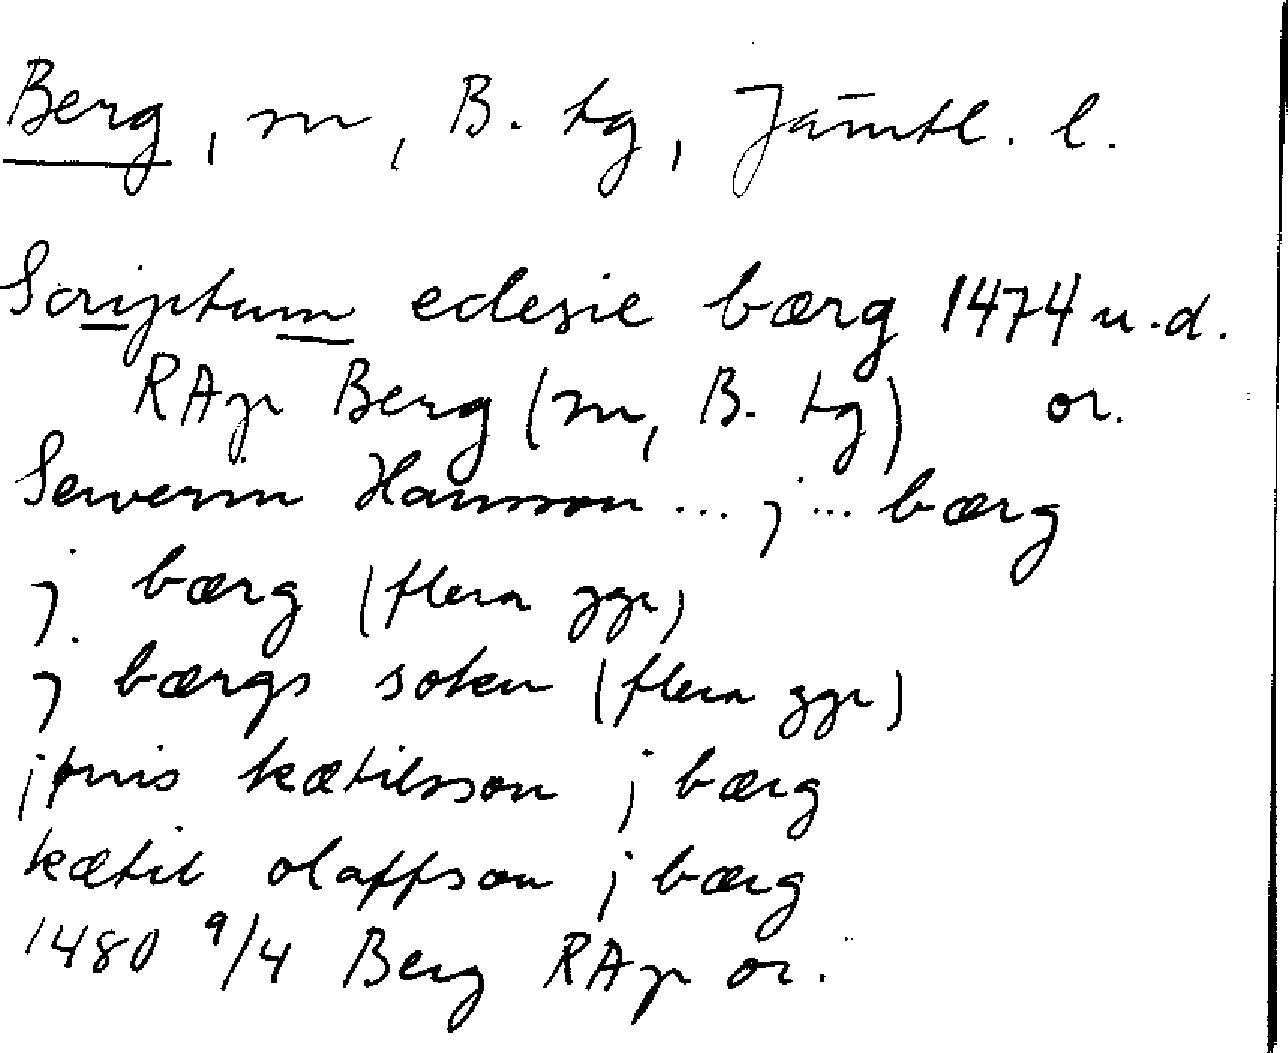 Berg, sn, B. tg, Jämtl. l.
Scriptum eclesie bærg 1474 u.d.
RAp Berg (sn, B. tg) or.
Sewerin Hansson ... j ... bærg
j bærg (flera ggr)
j bærgs soken (flera ggr)
kætilsson j bærg
kætil olaffson j bærg
1480 9/4 Berg RAp or.